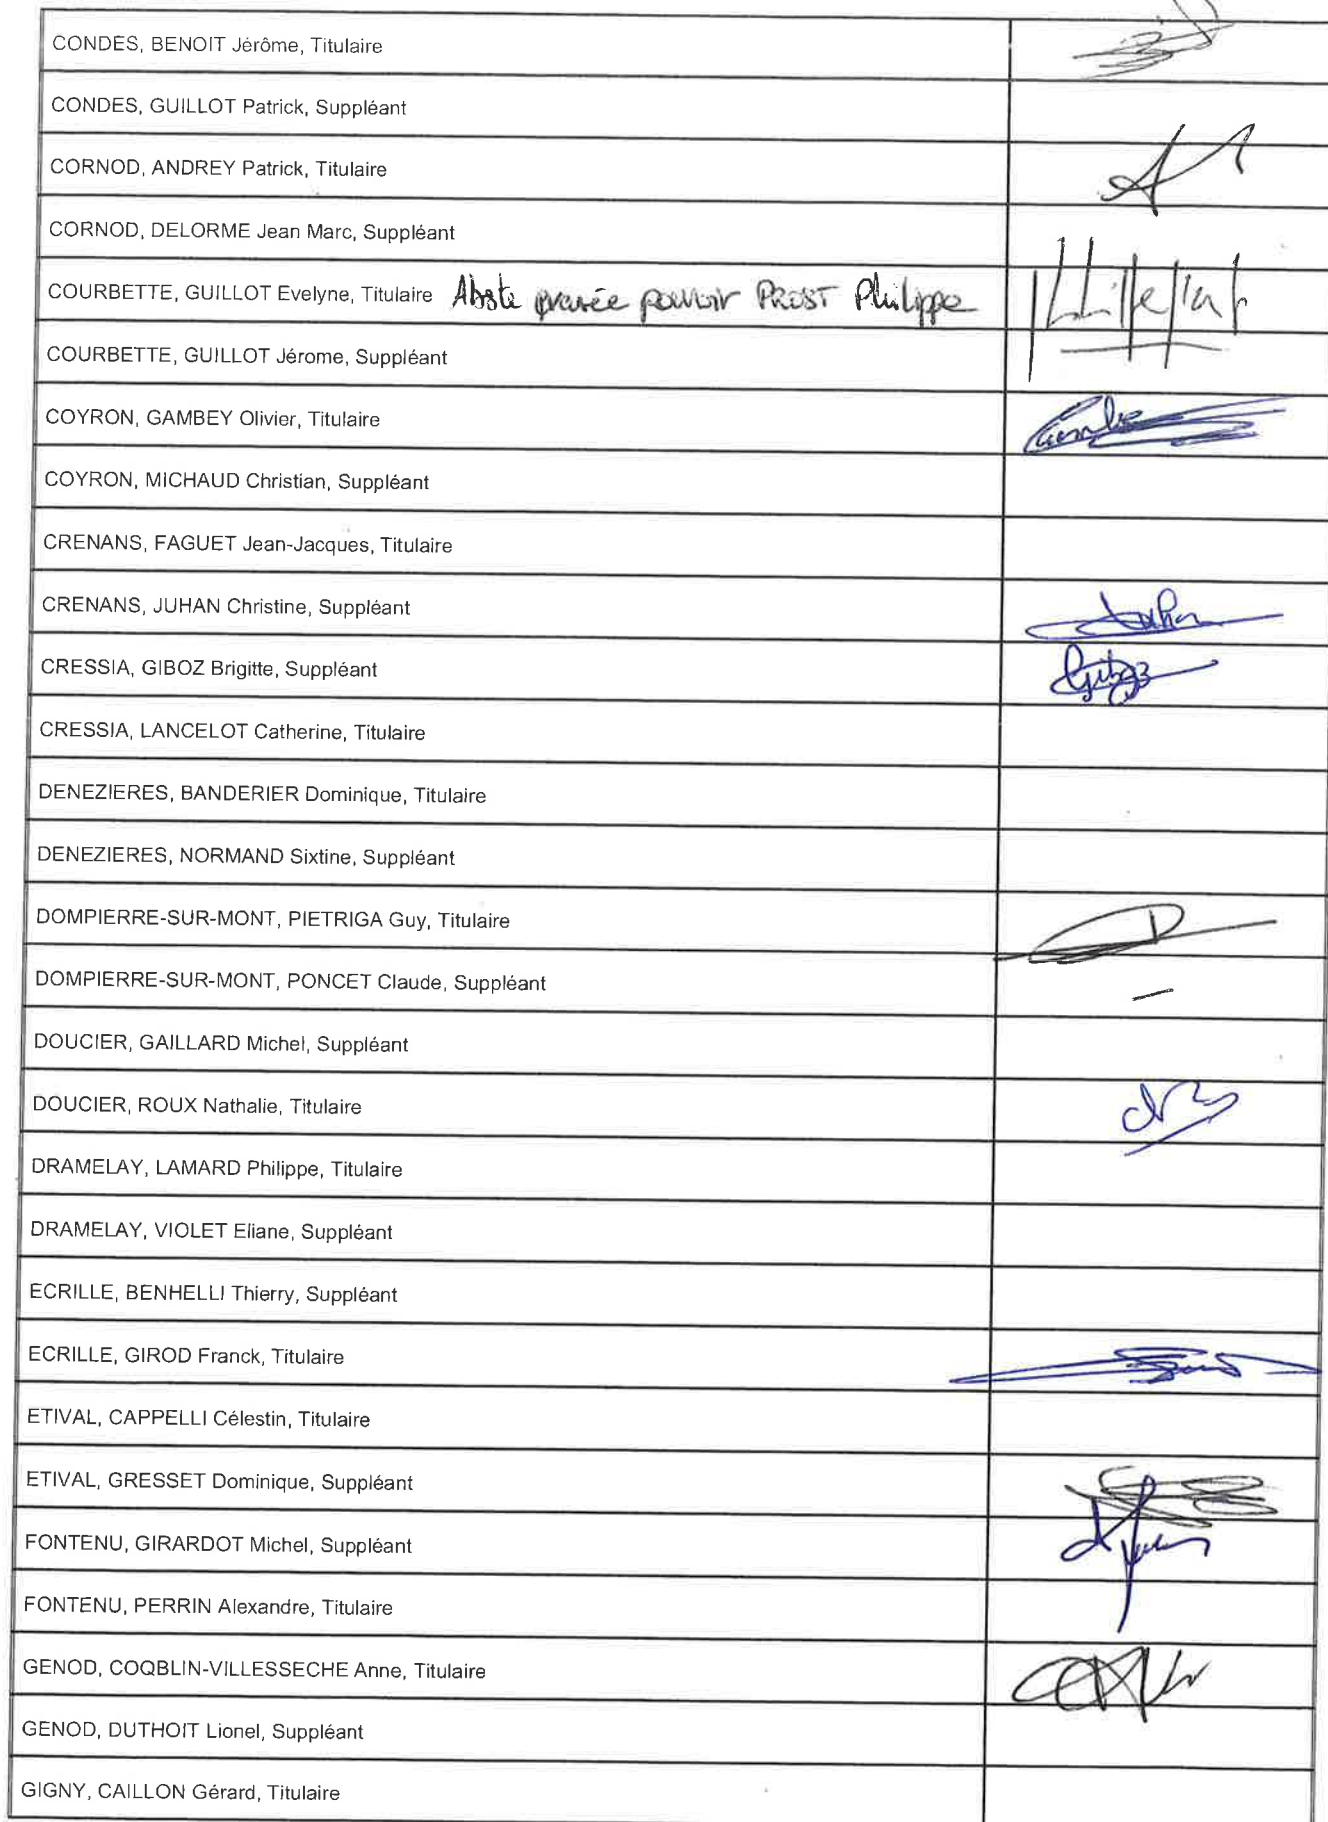 CONDES, BENOIT Jérôme, Titulaire
CONDES, GUILLOT Patrick, Suppléant
CORNOD, ANDREY Patrick, Titulaire
CORNOD, DELORME Jean Marc, Suppléant
COURBETTE, GUILLOT Evelyne, Titulaire pouvoir PROST Philippe
COURBETTE, GUILLOT Jérome, Suppléant
COYRON, GAMBEY Olivier, Titulaire
COYRON, MICHAUD Christian, Suppléant
CRENANS, FAGUET Jean-Jacques, Titulaire
CRENANS, JUHAN Christine, Suppléant
CRESSIA, GIBOZ Brigitte, Suppléant
CRESSIA, LANCELOT Catherine, Titulaire
DENEZIERES, BANDERIER Dominique, Titulaire
DENEZIERES, NORMAND Sixtine, Suppléant
DOMPIERRE-SUR-MONT, PIETRIGA Guy, Titulaire
DOMPIERRE-SUR-MONT, PONCET Claude, Suppléant
DOUCIER, GAILLARD Michel, Suppléant
DOUCIER, ROUX Nathalie, Titulaire
DRAMELAY, LAMARD Philippe, Titulaire
DRAMELAY, VIOLET Eliane, Suppléant
ECRILLE, BENHELLI Thierry, Suppléant
ECRILLE, GIROD Franck, Titulaire
ETIVAL, CAPPELLI Célestin, Titulaire
ETIVAL, GRESSET Dominique, Suppléant
FONTENU, GIRARDOT Michel, Suppléant
FONTENU, PERRIN Alexandre, Titulaire
GENOD, COQBLIN-VILLESSECHE Anne, Titulaire
GENOD, DUTHOIT Lionel, Suppléant
GIGNY, CAILLON Gérard, Titulaire